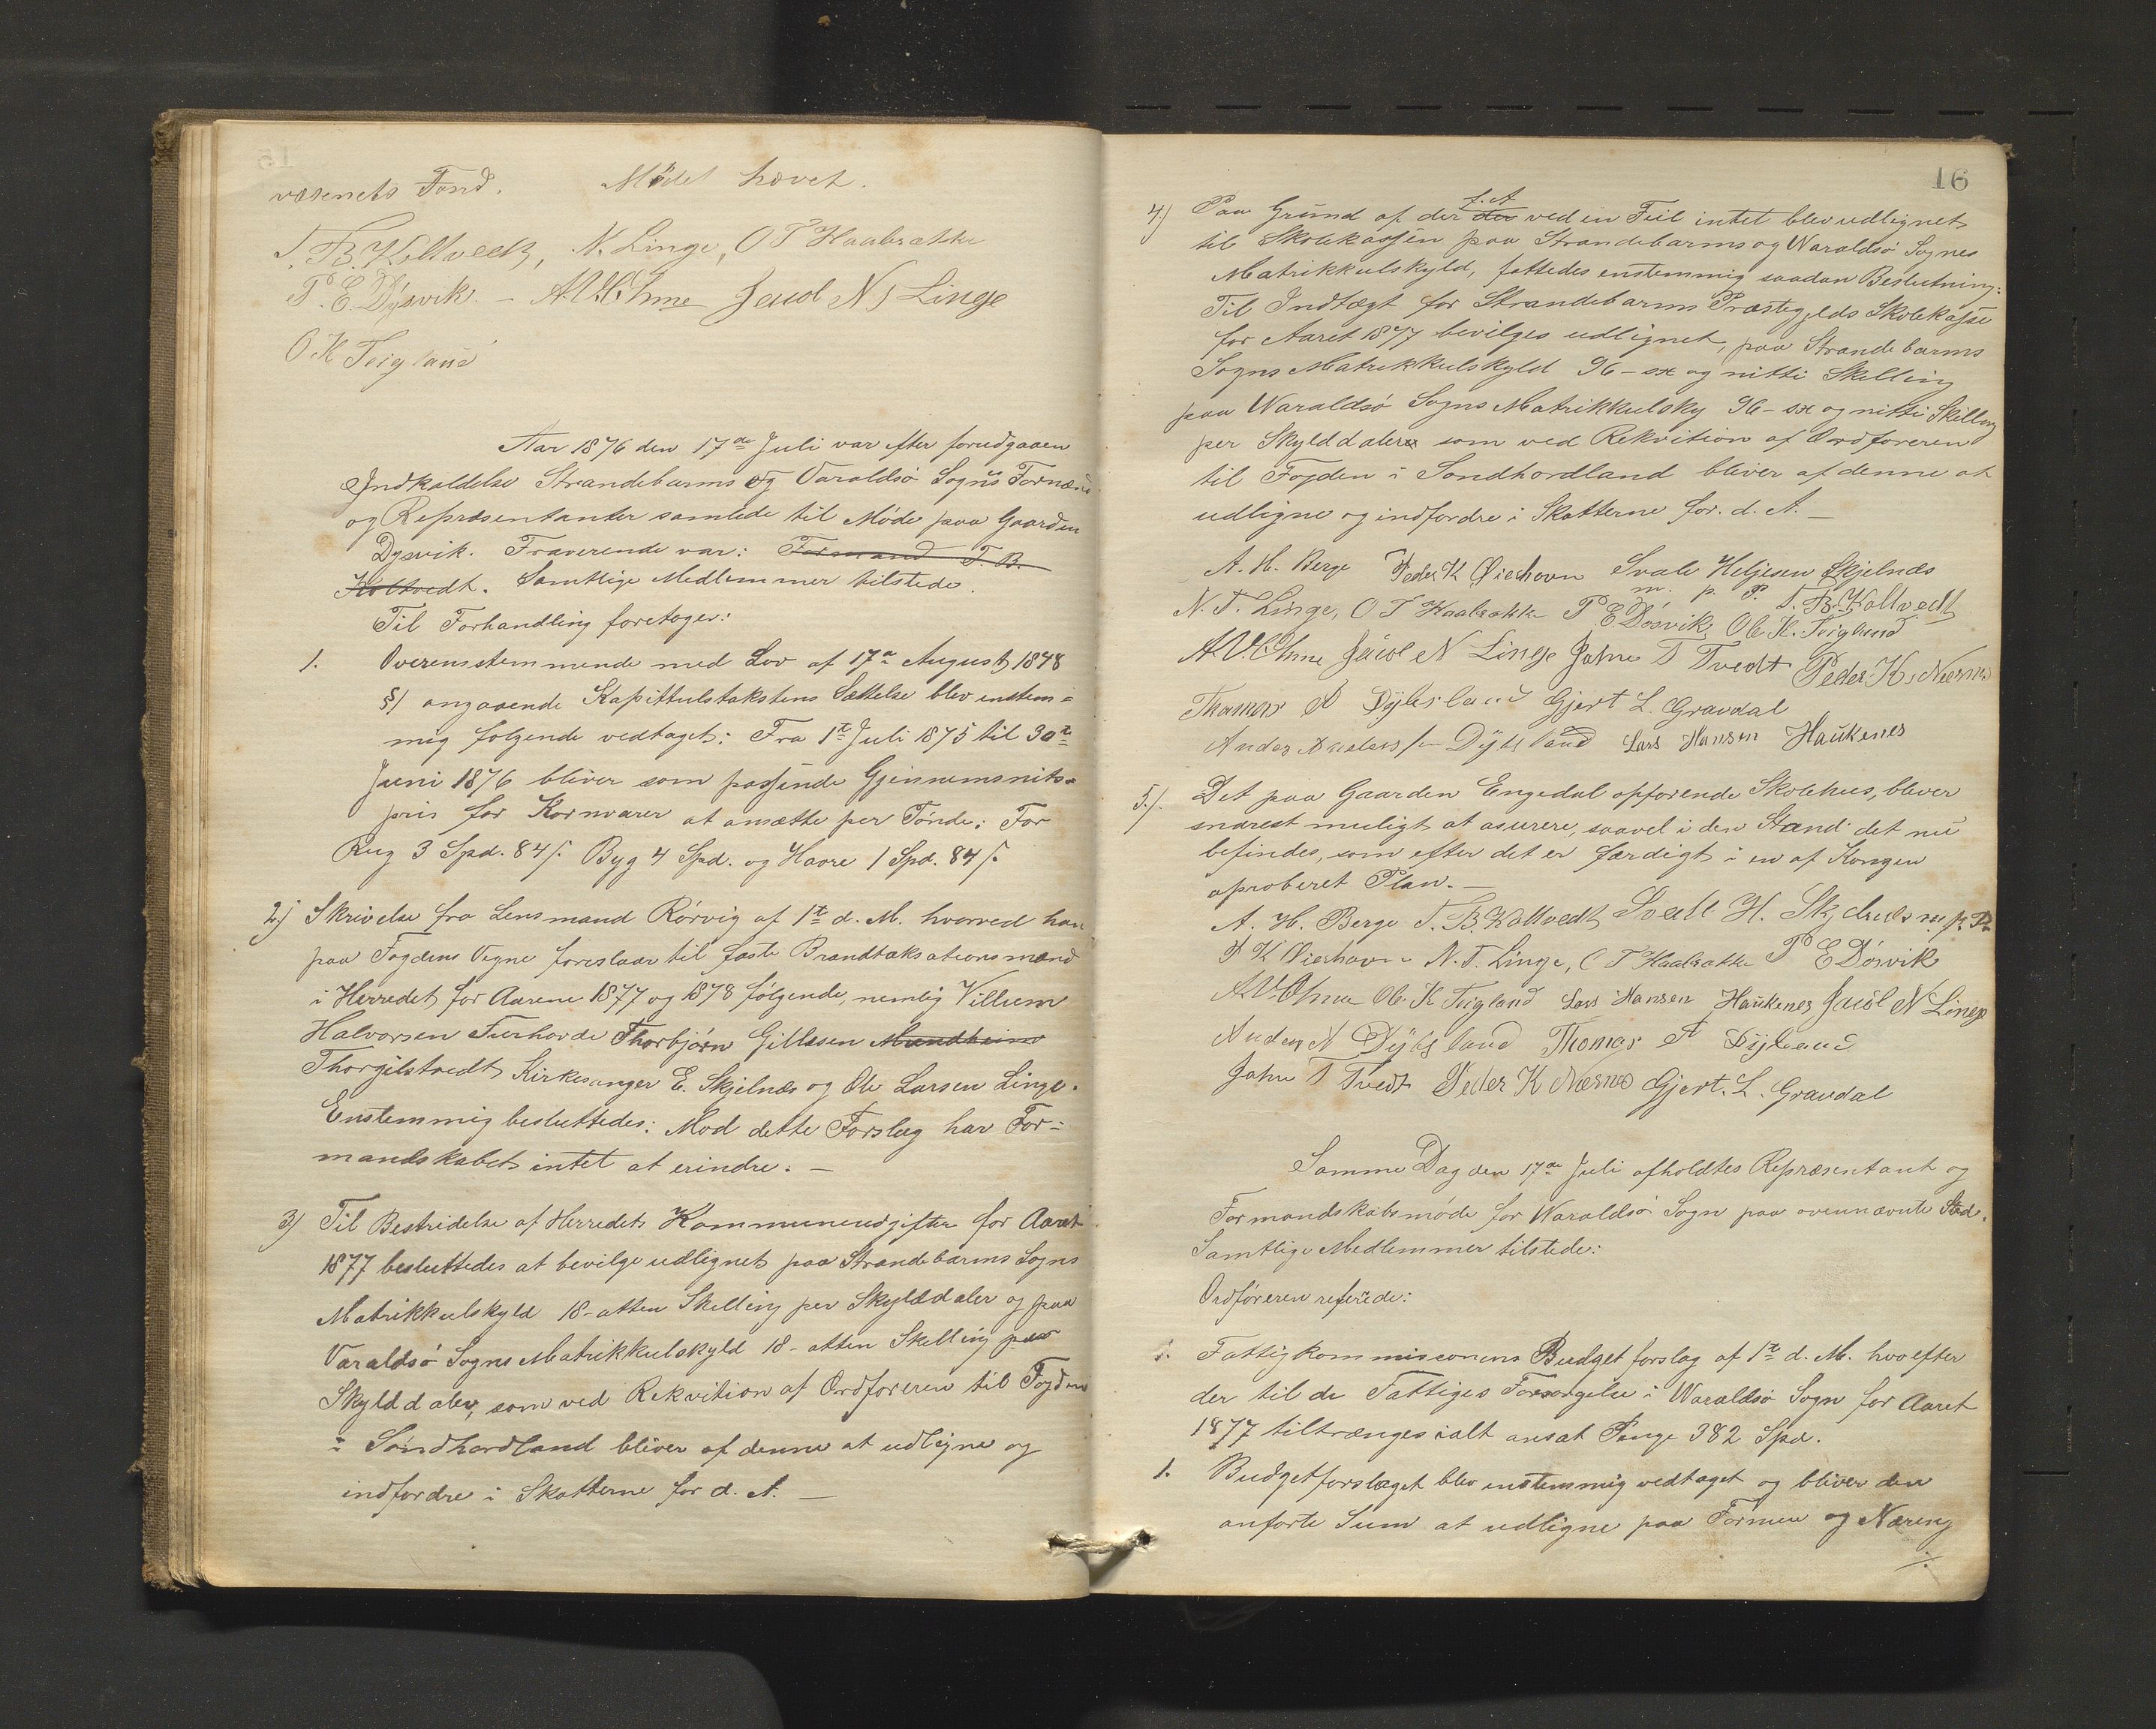 væsenets Fond. Mödet hævet.
T. B. Koltvedt, N. Linge, O T Haabrække
P. E. Dysvik. – A. V. Ohme Jacob N Linge
O K Teigland
Aar 1876 den 17de Juli var efter forudgaaen
Indkaldelse Strandebarms og Varaldsö Sogns Formænd
og Repræsentanter samlede til Möde paa Gaarden
Dysvik. Fraværende var: Formand T. B.
Koltvedt. Samtlige Medlemmer tilstede.
Til Forhandling foretoges:
1. Overensstemmende med Lov af 17de August 1848
§1 angaaende Kapittulstakstens Sættelse blev enstem=
mig følgende vedtaget: Fra 1te Juli 1875 til 30te
Juni 1876 bliver som passende Gjennemsnits=
pris for Kornvarer at ansætte per Tönde: For
Rug 3 Spd. 84 /. Byg 4 Spd. og Havre 1 Spd. 84 /.
2) Skrivelse fra Lensmand Rörvig af 1te d. M. hvorved han
paa Fogdens Vegne foreslaar til faste Brandtaksationsmænd
i Herredet for Aarene 1877 og 1878 følgende, nemlig Villum
Halvorsen Tveshovde Thorbjörn Gillesen Mundheim
Thorgilstvedt, Kirkesanger E. Skjelnæs og Ole Larsen Linge.
Enstemmig besluttedes: Mod dette Forslag har For=
mandskabet intet at erindre. –
3) Til Bestridelse af Herredets Kommuneudgifter for Aaret
1877 besluttedes at bevilge udlignet paa Strandebarms Sogns
Matrikkulskyld 18 - atten Skilling per Skylddaler og paa
Varaldsö Sogns Matrikkulskyld 18 - atten Skilling per
Skylddaler, som ved Rekvition af Ordföreren til Fogden
i Söndhordland bliver af denne at udligne og
indfordre i Skatterne for d. A. –
16
4) Paa Grund af der f. A. der ved en Feil intet blev udlignet
til Skolekassen paa Strandebarms og Waraldsö Sognes
Matrikkulskyld, fattedes enstemmig saadan Beslutning:
Til Indtægt for Strandebarms Præstegjelds Skolekasse
for Aaret 1877 bevilges udlignet, paa Strandebarms
Sogns Matrikkulskyld 96 - sx og nitti Skilling
paa Waraldsö Sogns Matrikkulsky 96 - sx og nitti Skilling
per Skylddaler som ved Rekvition af Ordföreren
til Fogden i Sondhordland bliver af denne at
udligne og indfordre i Skatterne for. d. A. –
A. H. Berge Peder K Øierhavn Svale Heljesen Skjelnæs
m. p. P. T. B. Koltvedt
N. T. Linge, O T Haabrække P E Dösvik, Ole K. Teigland
A. V. Ohme Jacob N Linge John T Tvedt Peder K. Næsnes
Thomas A Dybsland Gjert L. Gravdal
Anders Dybsland Lars Hansen Haukenes
5). Det paa Gaarden Engedal opförende Skolehus, bliver
snarest muligt at asurere, saavel i den Stand det nu
befindes, som efter det er færdigt i en af Kongen
aproberet Plan. –
A. H. Berge T. B. Koltvedt Svale H. Skjelnæs m. p. P.
P K Øierhavn N. T. Linge, O T Haabrække P E Dösvik
A. V. Ohme Ole K Teigland Lars Hansen Haukenes Jacob N Linge
Anders N Dybsland Thomas A Dybsland
John T Tvedt Peder K Næsnes Gjert. L. Gravdal
Samme Dag den 17de Juli afholdtes Repræsentant og
Formandskabsmöde for Waraldsö Sogn paa ovennævnte Sted.
Samtlige Medlemmer tilstede:
Ordföreren refererede:
1. Fattigkommisionens Budgetforslag af 1te d. M. hvoefter
der til de Fattiges Forsorgelse i Waraldsö Sogn for Aaret
1877 tiltrænges ialt ansat Penge 382 Spd.
1. Budgetforslaget blev enstemmig vedtaget og bliver den
anførte Sum at udligne paa Formue og Næring
./.